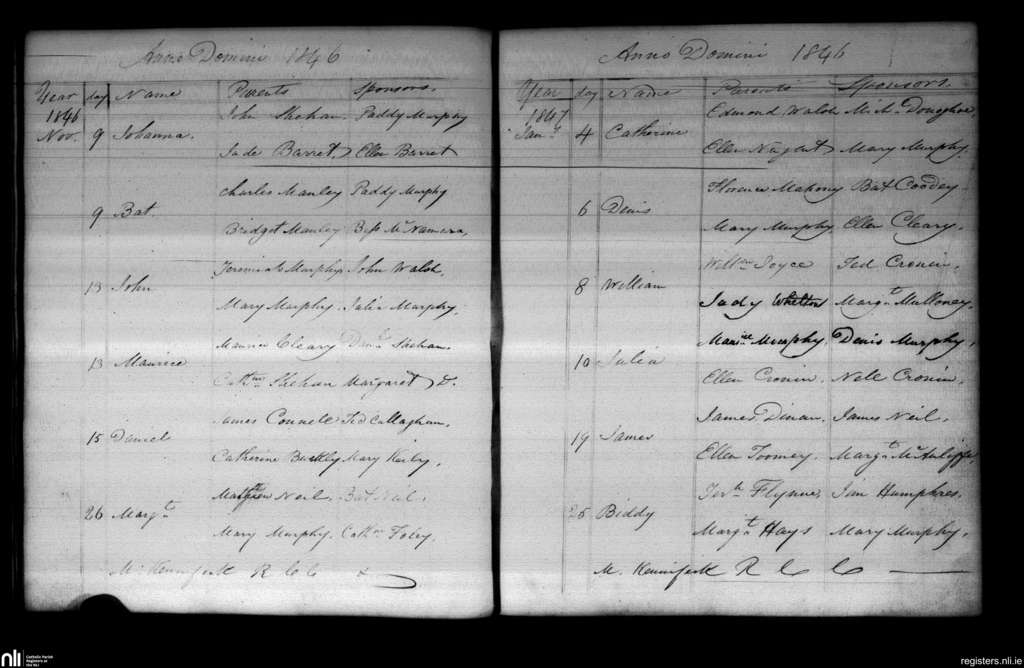 Anno Domini 1846
Year day Name Parents Sponsors.
1846 John Shehan. Paddy Murphy
Nov. 9 Johanna.
Jude Barret, Ellen Barret
Charles Manley Paddy Murphy
9 Bat.
Bridget Manley Bess McNamara,
Jeremiah Murphy John Walsh,
13 John
Mary Murphy. Julia Murphy.
Maurice Cleary Shehan.
13 Maurice
Shehan Margaret Do.
James Connell Ted Callaghan.
15 Daniel
Catherine Buckly Mary Kerby.
Mathew Neil. Bat Neil.
26 Margt
Mary Murphy. Cathne Foley.
M. Kennifeck R C C
Anno Domini 1846
Year day Name Parents Sponsors.
1847 Edmond Walsh Mich. Donoghoe,
Jany 4 Catherine
Ellen Mary Murphy.
Florence Mahony Bat Coodey
6 Denis
Mary Murphy. Ellen Cleary.
Willm Joyce Ted Cronin.
8 William
Judy Whelton Margt Mulloney.
Murphy. Denis Murphy,
10 Julia
Ellen Cronin. Nell Cronin.
James Dinan. James Neil.
19 James
Ellen Toomey. Margt McAuliffe,
Flynne, Jan Humphres.
25 Biddy
Margt Hays Mary Murphy,
M. Kennifeck R C C
nli Catholic Parish Registers at the NLI
registers.nli.ie